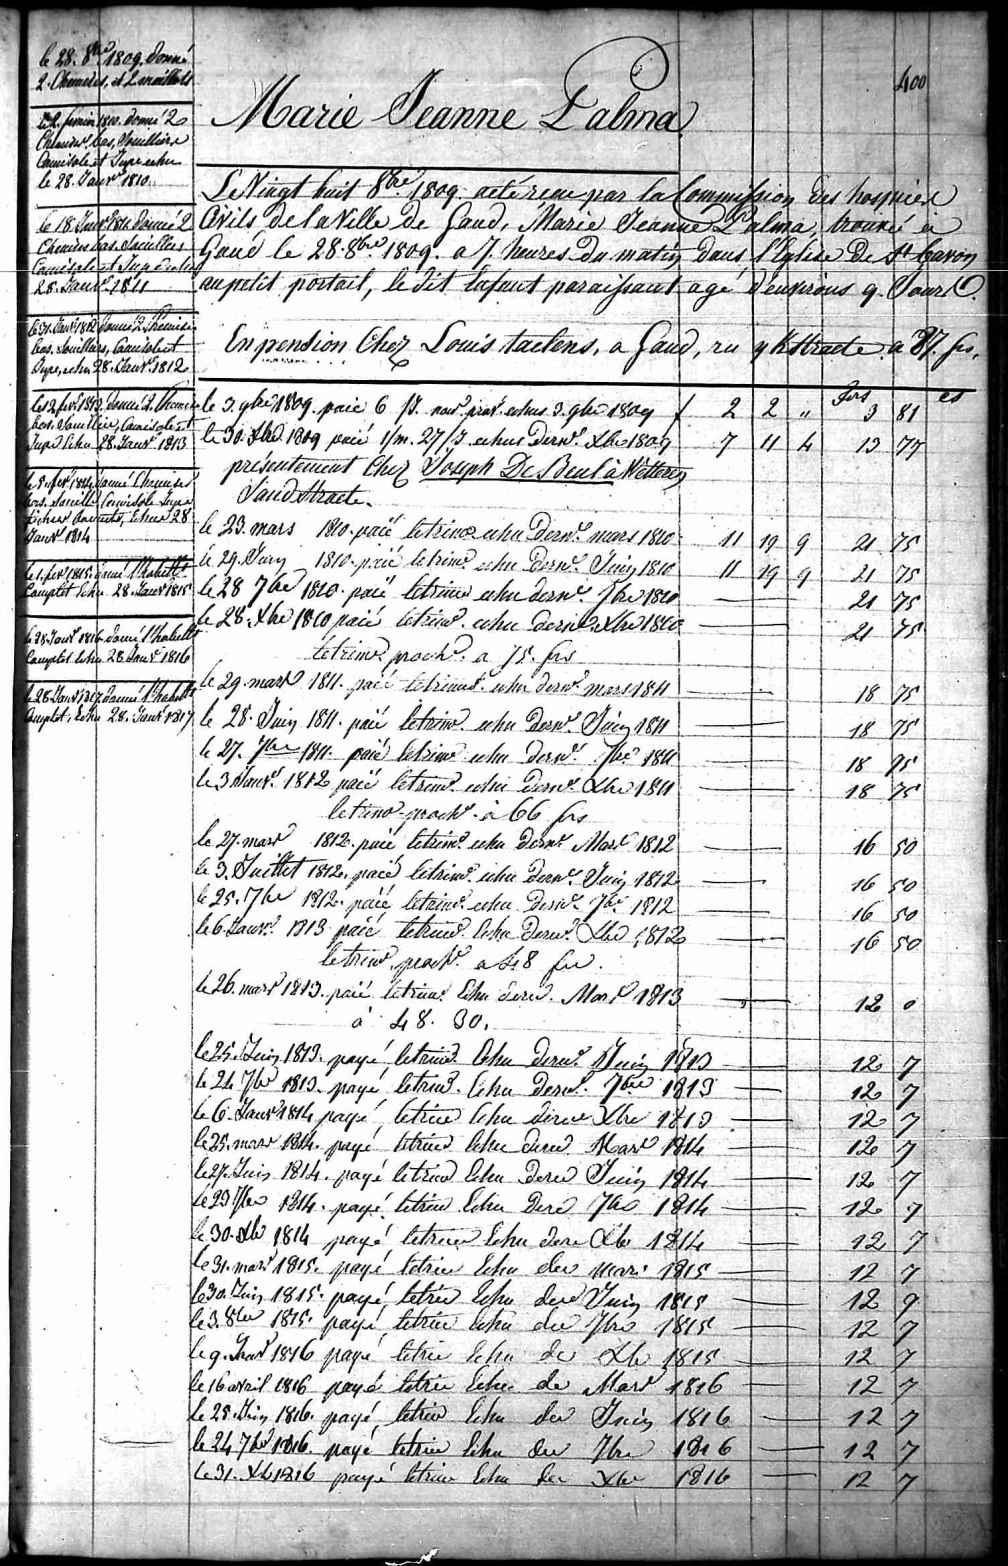 400
Marie Jeanne Palma
le 28. 8bre 1809 donné
2 Chemises, et 2 maillots
le 2. fevrier 1810 donné 2
Chemises, bas, Souilliers
Camisole et Jupe echu
le 28. Janvr 1810
le 18 Janvr 1811 donné 2
Chemises bas. Souilliers
Camisole et Jupe echu
28. Janvr. 1811
le 31. Janvr 1812 donné 2 Chemises
bas. Souilliers, Camisole et
Jupe, echu 28. Janvr. 1812
le 12 fevr 1813. donné 2. Chemises
bas. Souliers, Camisole et
Jupe Echu 28. Janvr 1813
fevr 1814 donné Chemises
bas. Camisole Jupe
Echue 28
Janvr 1814
le 1. fevr 1815. donné l'habillt
Complet Echu 28. Janvr 1815
le 28 Janvr 1816 donné l'habillt
Complet Echu 28 Janvr 1816
le 28 Janvr 1817 donné l'habillt
Complet, Echu 28. Janvr 1817
Le Vingt huit 8bre 1809 a été recue par la Commission des hospices
Civils de la Ville de Gand, Marie Jeanne Palma, trouvée à
Gand le 28. 8bre 1809. a 7. heures du matin dans l'Eglise De St Bavon
au petit portail, le dit Enfant paraissant agé d'environs 9. Jours.
En pension Chez Louis taelens, a Gand, ru a 87. frs.
frs cs
le 3. 9bre 1809. paié 6 echus 3. 9bre 1809 f 2 2 „ 3 81
le 30. Xbre 1809 paié 1/m. 27/J echus Dernr. Xbre 1809 7 11 4 13 77
présentement Chez Joseph De Beul a Wetteren
Sandstraete.
le 23. mars 1810. paié letrimr echu Dernr. mars 1810 11 19 9 21 75
le 29. Juin 1810. paié letrimr. echu Dernr. Juin 1810 11 19 9 21 75
le 28 7bre 1810. paié letrimr echu dernr. 7bre 1810 21 75
le 28. Xbre 1810 paié letrimr. echu dernr. Xbre 1810 21 75
letrimr. prochr. a 75. frs
le 29. mars 1811. paié letrimr. echu dernr. mars 1811 18 75
le 28. Juin 1811. paié letrimr. echu dernr. Juin 1811 18 75
le 27. 7bre 1811. paié letrimr echu dernr. 7bre 1811 18 75
le 3 Janvr. 1812 paié letrimr. echu dernr. Xbre 1811 18 75
letrimr. prochr. à 66 frs
le 27. mars 1812. paié letrimr. echu dernr Mars 1812 16 50
le 3. Juillet 1812. paié letrimr. echu dernr. Juin 1812 16 50
le 25. 7bre 1812. paié letrimr. echu dernr. 7bre 1812 16 50
le 6 Janvr. 1813 paié letrimr. Echu dernr. Xbre 1812 16 50
letrimr. prochr. a 48 frs.
le 26. mars 1813. paié letrimr. Echu dernr. Mars 1813 12 0
à 48. 30.
le 25. Juin 1813. payé, letrimr. Echu dernr. Juin 1813 12 7
le 24 7bre 1813. payé letrimr. Echu dernr. 7bre 1813 12 7
le 6. Janvr 1814 payé, letrimr Echu dernr Xbre 1813 12 7
le 25. mars 1814. payé letrimr Echu dernr Mars 1814 12 7
le 27. Juin 1814. payé letrimr Echu dernr Juin 1814 12 7
le 23 7bre 1814. payé letrimr Echu Dernr 7bre 1814 12 7
le 30. Xbre 1814 payé letrimr Echu dernr Xbre 1814 12 7
le 31. mars 1815. payé letrimr Echu der mars 1815 12 7
le 30. Juin 1815. payé, letrimr Echu der Juin 1815 12 9
le 3. 8bre 1815. payé letrimr Echu der 7bre 1815 12 7
le 9. Janvr 1816 payé letrimr Echu der Xbre 1815 12 7
le 16 avril 1816 payé letrimr Echu. der Mars 1816 12 7
le 25. Juin 1816. payé letrimr Echu der Juin 1816 12 7
le 24 7bre 1816. payé letrimr Echu der 7bre 1816 12 7
le 31. Xbre 1816 payé letrimr Echu der Xbre 1816 12 7